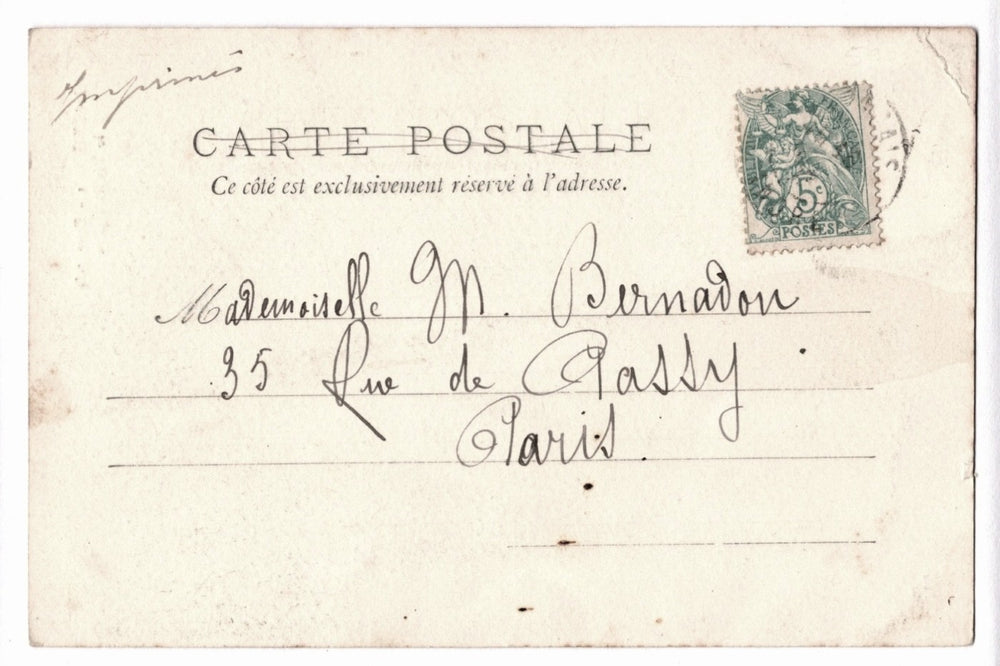 Imprimés
CARTE POSTALE
Ce côté est exclusivement réservé à l'adresse.
5c
POSTES
Mademoiselle M. Bernadou
35 Rue de Passy
Paris.